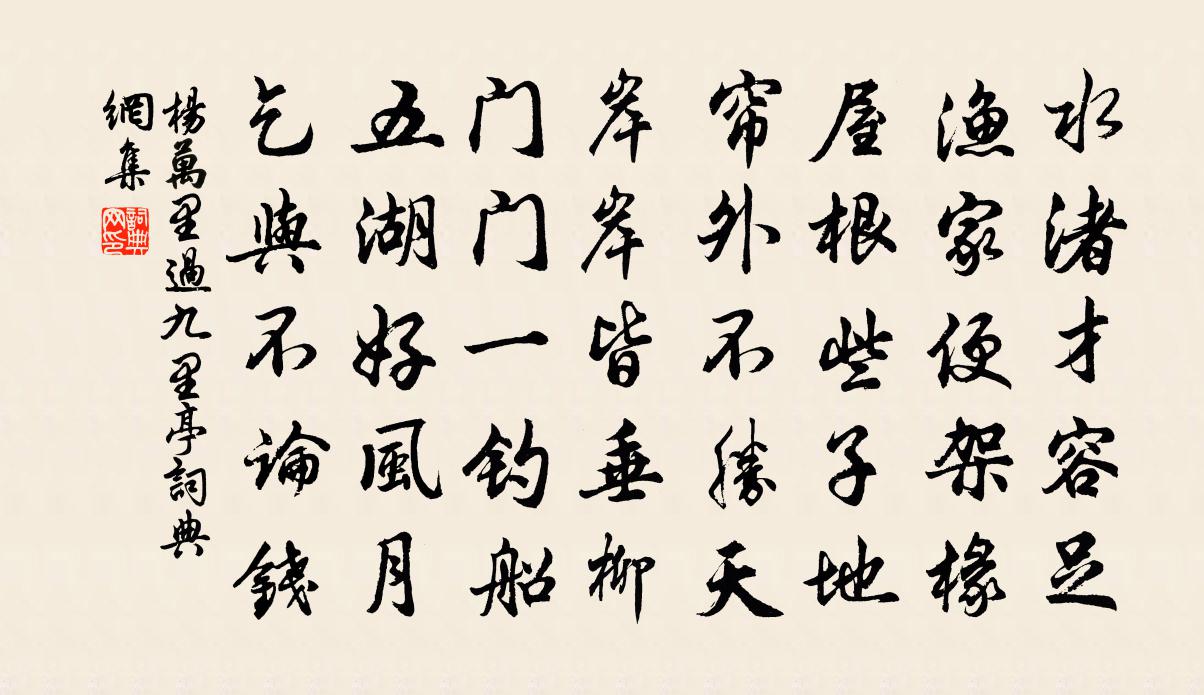 水渚才容足
漁家便架椽
屋根些子地
帘外不勝天
岸岸皆垂柳
门门一钓船
五湖好風月
乞與不論錢
楊萬里過九里亭詞典
網集
詞典網印